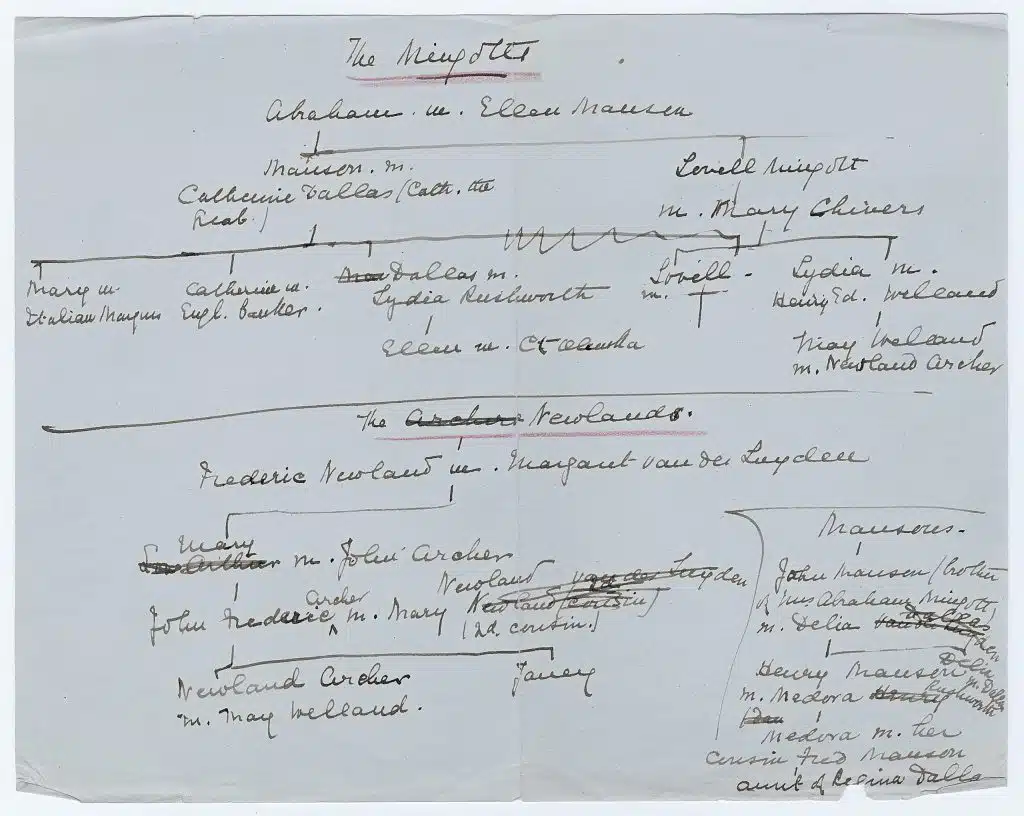 The Mingotts
Abraham . m. Ellen Manson
Manson . m.
Catherine Dallas (Cath. the
Great.)
Lovell Mingott
m. Mary Chivers
Mary m.
Italian Marquis
Catherine m.
Engl. Banker.
Dallas m.
Lydia Rushworth
Ellen m. Ct Olenska
Lovell -
m.
Lydia m.
Henry Ed. Welland
May Welland
m. Newland Archer
The Archers Newlands.
Frederic Newland m. Margaret van der Luyden
Mary
m. John Archer
John Frederic Archer m. Mary Newland van der Luyden
Newland (2d cousin)
(2d. cousin.)
Newland Archer
m. May Welland.
Janey
Mansons -
John Manson (brother
of Mrs Abraham Mingott)
m. Delia van der Luyden Dallas
Henry Manson
m. Medora Henry
Delia
m. Dallas
Rushworth
Medora m. her
cousin Fred Manson
aunt of Regina Dallas